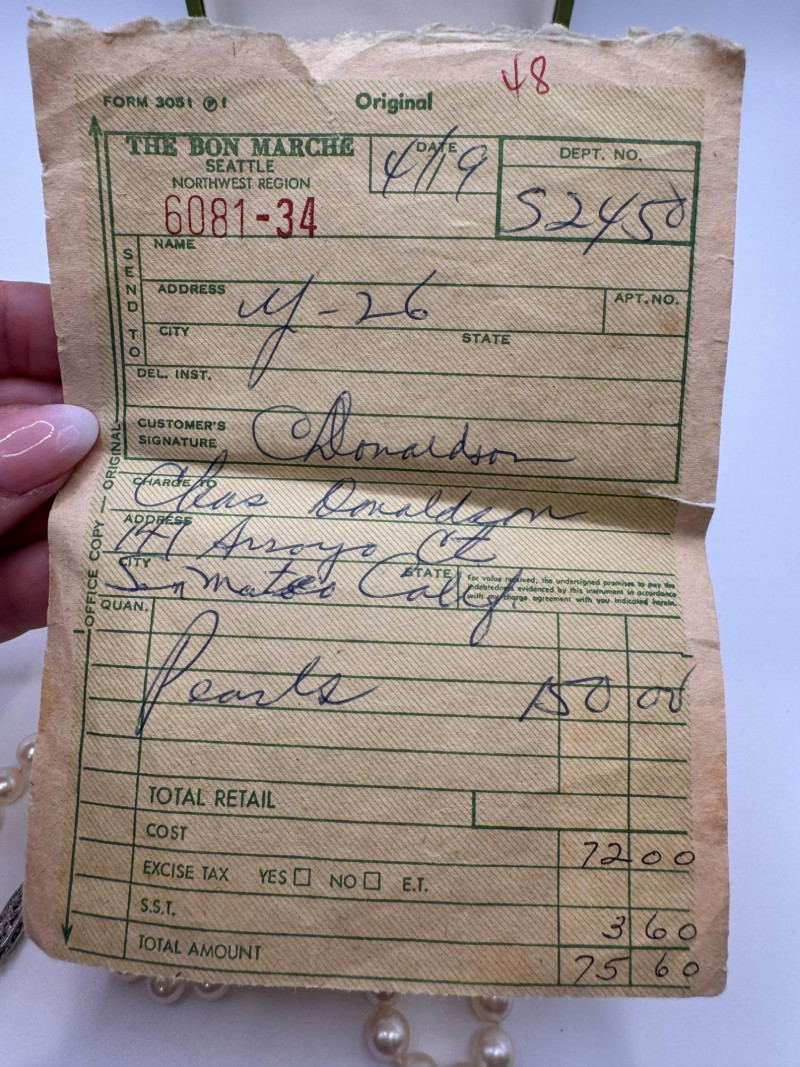 48
FORM 3051 Ⓟ 1 Original
THE BON MARCHÉ
SEATTLE
NORTHWEST REGION
6081-34
DATE
4/19
DEPT. NO.
S2450
SEND TO
NAME
ADDRESS
APT. NO.
y-26
CITY STATE
DEL. INST.
CUSTOMER'S
SIGNATURE
CDonaldson
CHARGE TO
Chas Donaldson
ADDRESS
141 Arroyo Ct
CITY STATE
San Mateo Calif
For value received, the undersigned promises to pay the
indebtedness evidenced by this instrument in accordance
with my charge agreement with you indicated herein.
OFFICE COPY — ORIGINAL
QUAN.
Pearls 150 00
TOTAL RETAIL
COST 72 00
EXCISE TAX YES ☐ NO ☐ E.T.
S.S.T. 3 60
TOTAL AMOUNT 75 60